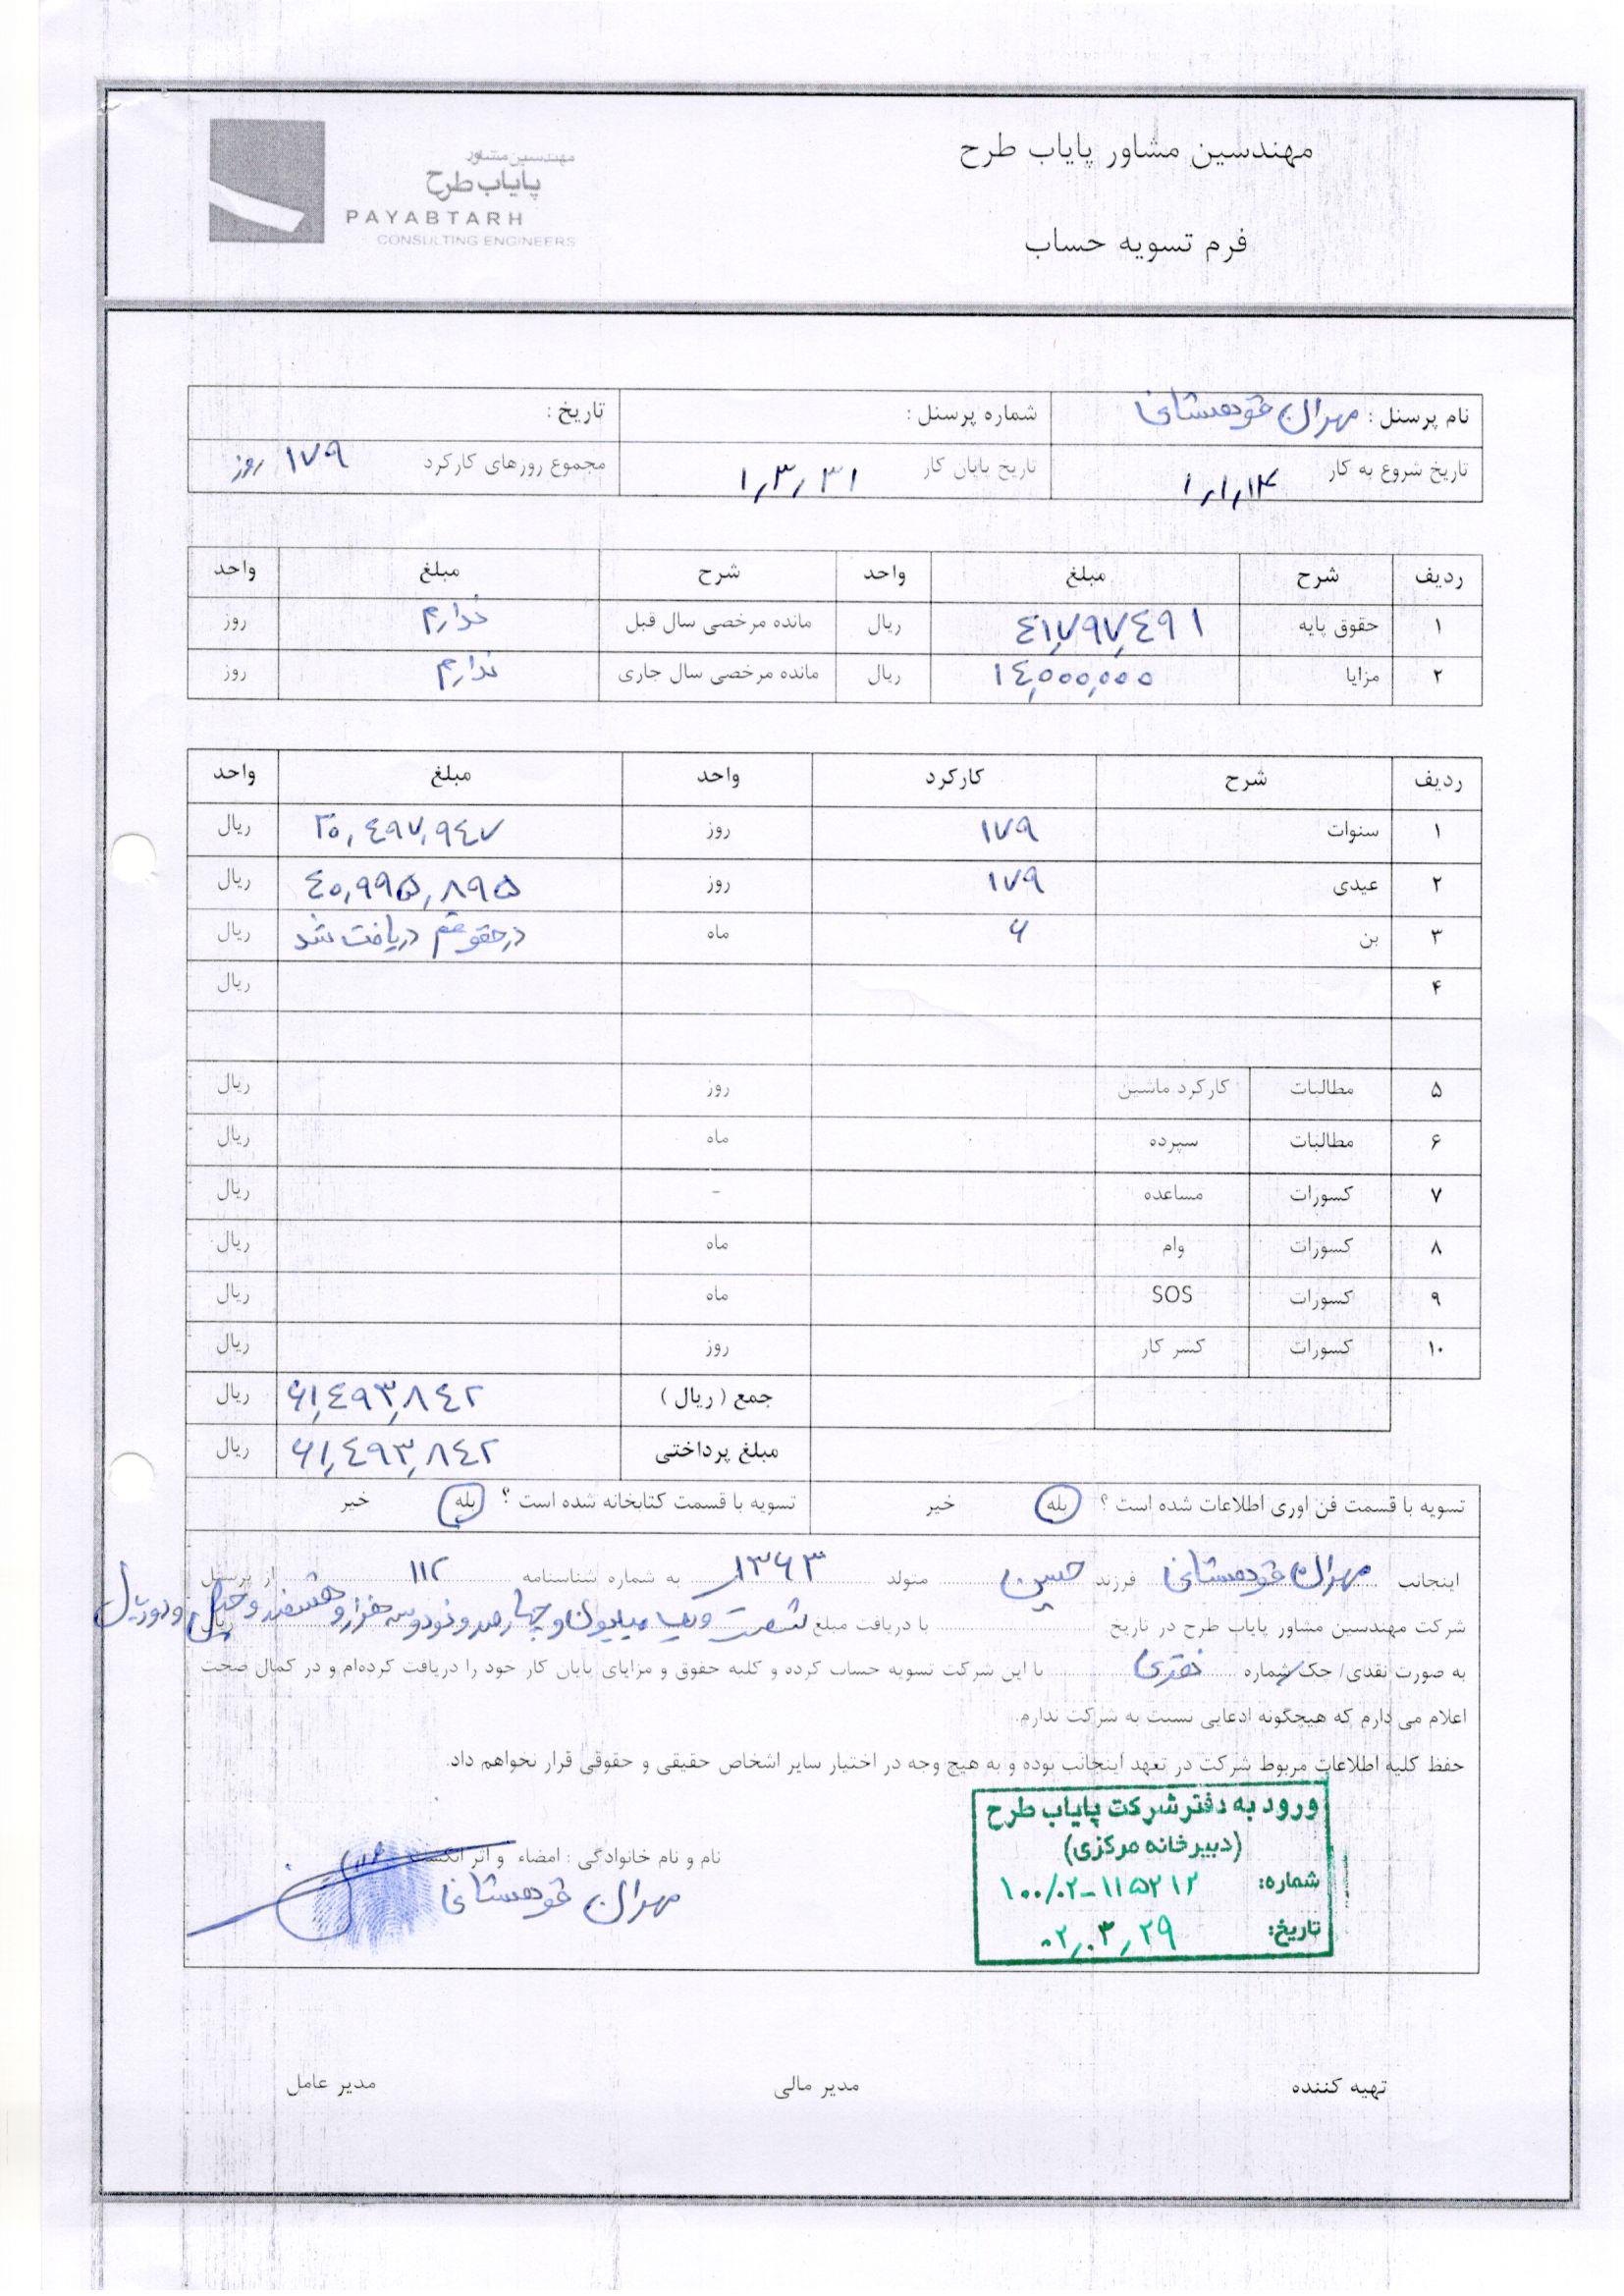 مهندسین مشاور پایاب طرح
مهندسین مشاور
پایاب طرح
PAYABTARH
CONSULTING ENGINEERS
فرم تسویه حساب
نام پرسنل : مهران قودهستانی شماره پرسنل : تاریخ :
تاریخ شروع به کار ۱,۱,۱۴ تاریخ پایان کار ۱,۳,۳۱ مجموع روزهای کارکرد ۱۷۹ روز
ردیف شرح مبلغ واحد شرح مبلغ واحد
۱ حقوق پایه ۴۱,۷۹۷,۴۹۱ ریال مانده مرخصی سال قبل ندارم روز
۲ مزایا ۱۴,۰۰۰,۰۰۰ ریال مانده مرخصی سال جاری ندارم روز
ردیف شرح کارکرد واحد مبلغ واحد
۱ سنوات ۱۷۹ روز ۲۰,۴۹۷,۹۴۷ ریال
۲ عیدی ۱۷۹ روز ۴۰,۹۹۵,۸۹۵ ریال
۳ بن ۶ ماه در حقوقم دریافت شد ریال
۴ ریال
۵ مطالبات کارکرد ماشین روز ریال
۶ مطالبات سپرده ماه ریال
۷ کسورات مساعده - ریال
۸ کسورات وام ماه ریال
۹ کسورات SOS ماه ریال
۱۰ کسورات کسر کار روز ریال
جمع ( ریال ) ۶۱,۴۹۳,۸۴۲ ریال
مبلغ پرداختی ۶۱,۴۹۳,۸۴۲ ریال
تسویه با قسمت فن اوری اطلاعات شده است ؟ بله خیر تسویه با قسمت کتابخانه شده است ؟ بله خیر
اینجانب مهران قودهستانی فرزند حسین متولد ۱۳۶۳ به شماره شناسنامه ۱۱۲ از پرسنل
شرکت مهندسین مشاور پایاب طرح در تاریخ با دریافت مبلغ شصت و یک میلیون و چهارصد و نود و سه هزار و هشتصد و چهل و دو ریال ریال
به صورت نقدی/ چک شماره نقدی با این شرکت تسویه حساب کرده و کلیه حقوق و مزایای پایان کار خود را دریافت کرده‌ام و در کمال صحت
اعلام می دارم که هیچگونه ادعایی نسبت به شرکت ندارم.
حفظ کلیه اطلاعات مربوط شرکت در تعهد اینجانب بوده و به هیچ وجه در اختیار سایر اشخاص حقیقی و حقوقی قرار نخواهم داد.
ورود به دفتر شرکت پایاب طرح
(دبیرخانه مرکزی)
شماره: ۱۰۰/۰۲-۱۱۵۲۱۲
تاریخ: ۰۲,۰۳,۲۹
نام و نام خانوادگی : امضاء و اثر انگشت
مهران قودهستانی
تهیه کننده مدیر مالی مدیر عامل